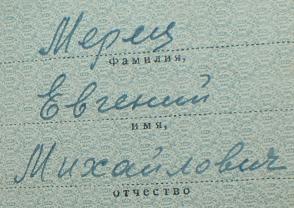 Мерец
фамилия,
Евгений
имя,
Михайлович
отчество